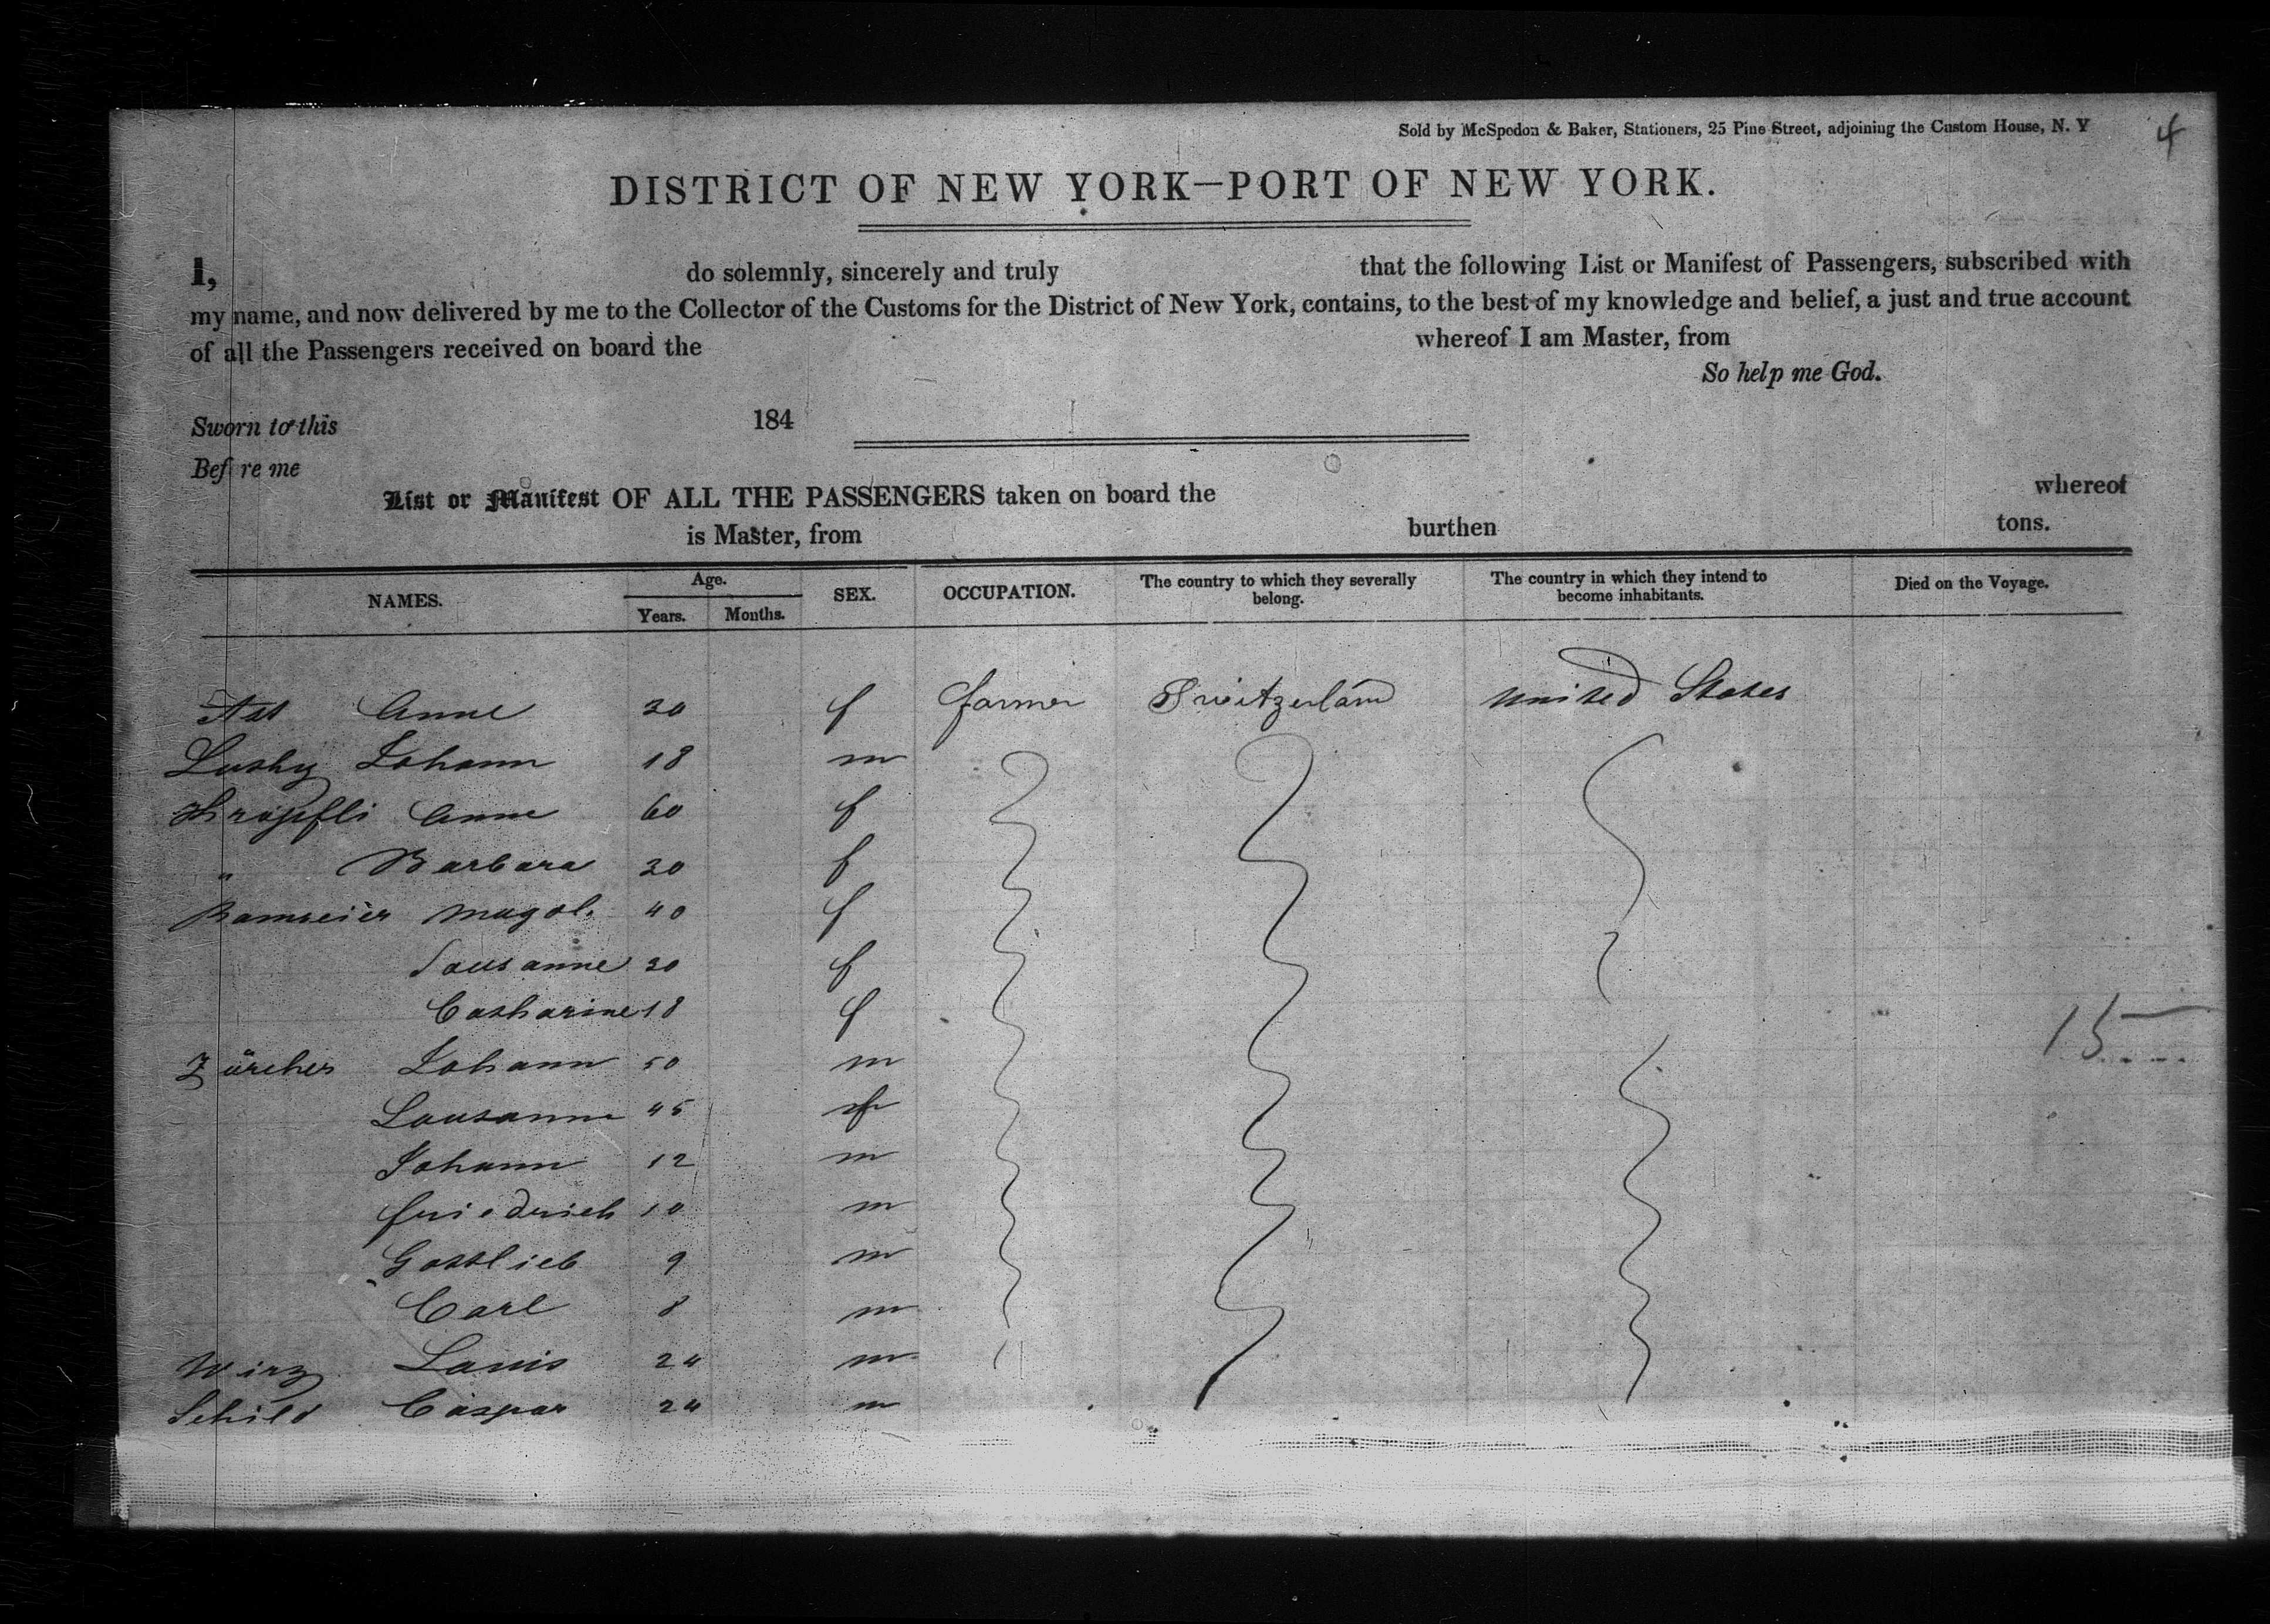 Sold by McSpedon & Baker, Stationers, 25 Pine Street, adjoining the Custom House, N. Y
4
DISTRICT OF NEW YORK—PORT OF NEW YORK.
I, do solemnly, sincerely and truly that the following List or Manifest of Passengers, subscribed with
my name, and now delivered by me to the Collector of the Customs for the District of New York, contains, to the best of my knowledge and belief, a just and true account
of all the Passengers received on board the whereof I am Master, from
So help me God.
Sworn to this 184
Before me
List or Manifest OF ALL THE PASSENGERS taken on board the whereof
is Master, from burthen tons.
NAMES. Age. Years. Months. SEX. OCCUPATION. The country to which they severally belong. The country in which they intend to become inhabitants. Died on the Voyage.
Anne f farmer Switzerland United States
Johann 18 m
Kröpfli Anne 60 f
" Barbara f
Ramseier Magdl. 40 f
Sousanne f
Catharine 18 f
Zürcher Johann 50 m
Sousanne 45 f
Johann 12 m
Friedrich 10 m
Gottlieb 9 m
Carl 8 m
Wirz Louis 24 m
Schild Caspar 24 m
15